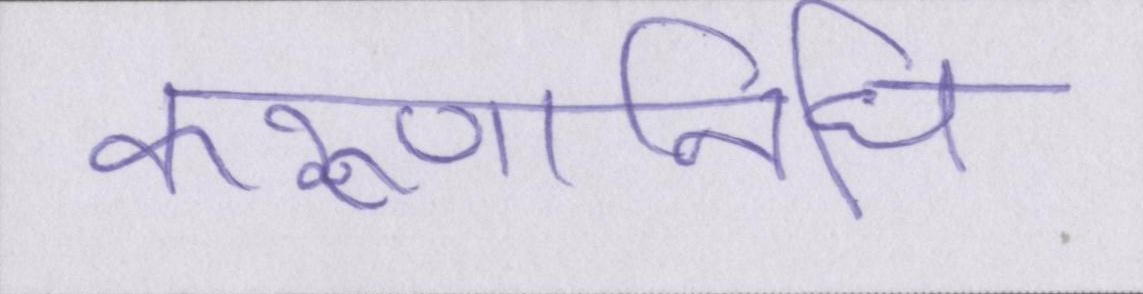 करूणानिधि